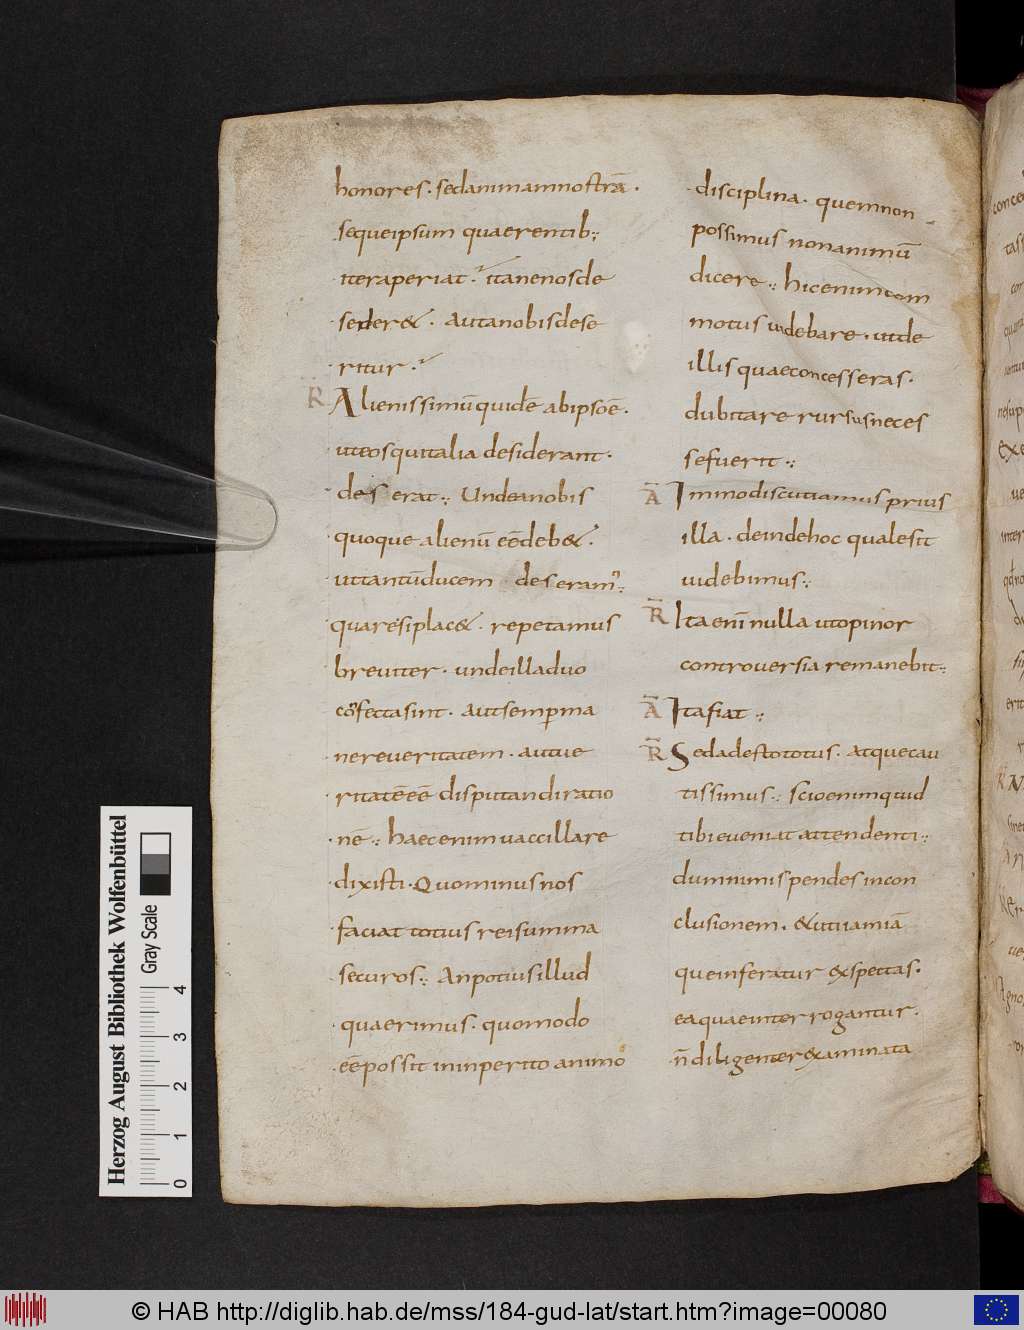 honores. sedanimamnostrā.
sequeipsum quaerentib;
iteraperiat. itanenosde
serer&. autanobisdese
ritur.
R Alienissimūquidē abipsoē.
uteosquitalia desiderant.
deserat: Undeanobis
quoque alienū eēdeb&.
uttantūducem deseram᾽:
quaresiplac&. repetamus
breuiter. undeilladuo
cōfectasint. autsemperma
nereueritatem. autue
ritatēeē disputandiratio
nē: haecenimuaccillare
dixisti. Quominusnos
faciat totius reisumma
securos: Anpotiusillud
quaerimus. quomodo
eēpossit ininperito animo
disciplina. quemnon
possimus nonanimū
dicere: hicenimcom
motus uidebare. utde
illis quaeconcesseras.
dubitare rursusneces
sefuerit:
A Immodiscutiamusprius
illa. deindehoc qualesit
uidebimus:
R Ita enī nulla utopinor
controuersia remanebit:
A Itafiat:
R Sedadestototus. atquecau
tissimus: scioenimquid
tibieueniat attendenti:
dumnimispendesincon
clusionem. &utiiamiā
queinferatur exspectas.
eaquaeinterrogantur.
n̄diligenter&aminata
Herzog August Bibliothek Wolfenbüttel
Gray Scale
0 1 2 3 4
© HAB http://diglib.hab.de/mss/184-gud-lat/start.htm?image=00080